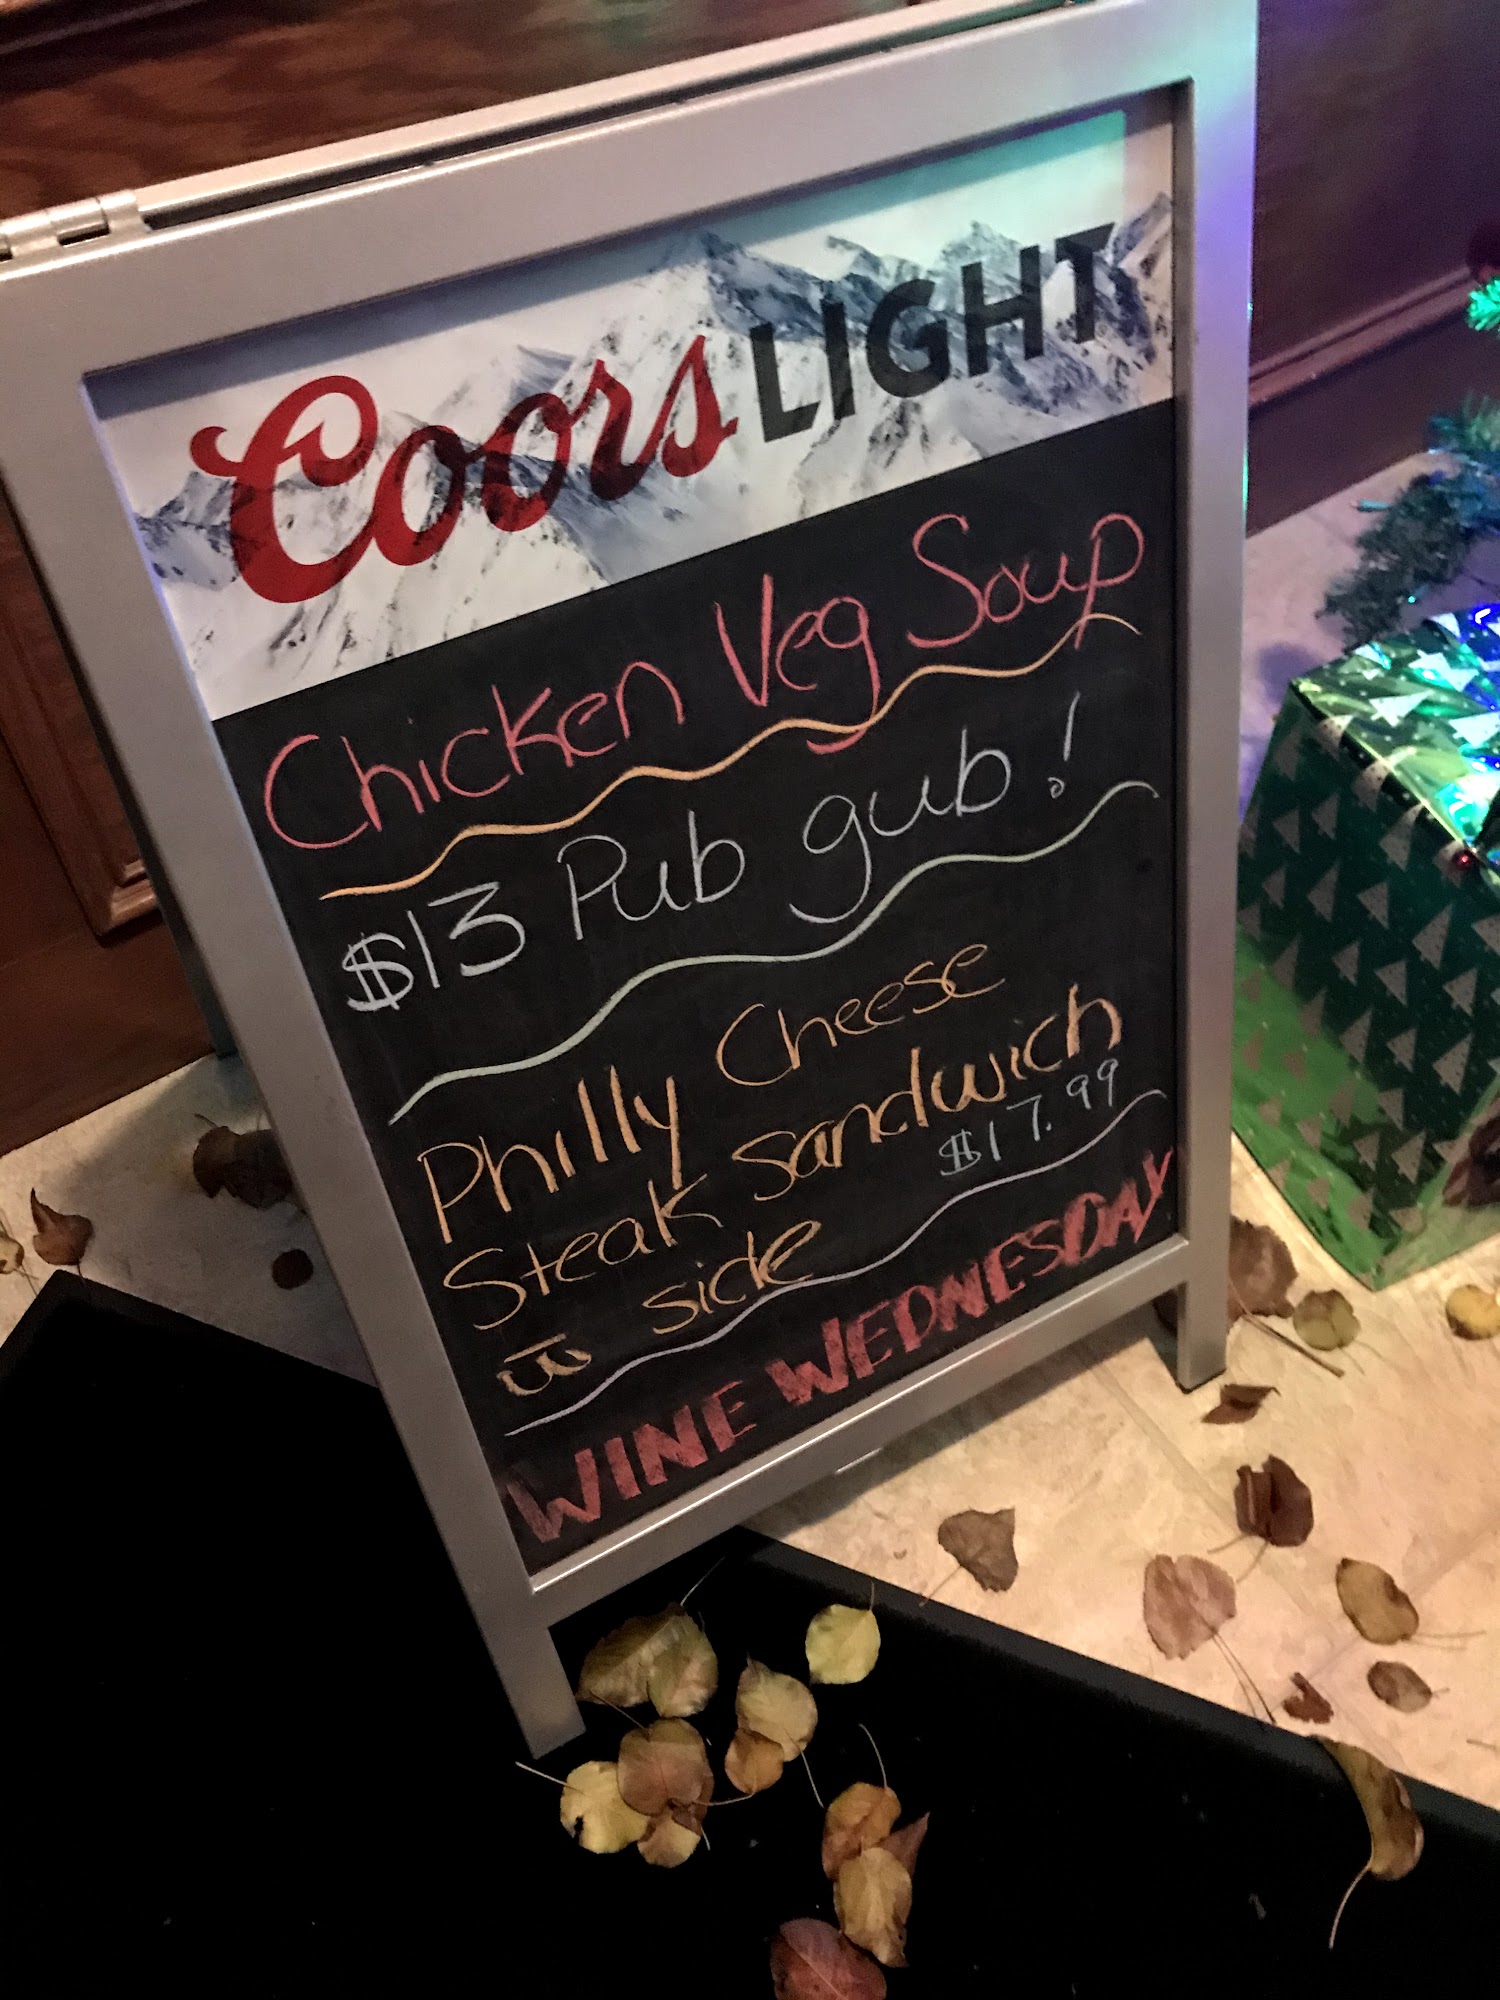 Coors LIGHT
Chicken Veg Soup
$13 Pub gub!
Philly Cheese
Steak Sandwich
$17.99
w side
WINE WEDNESDAY